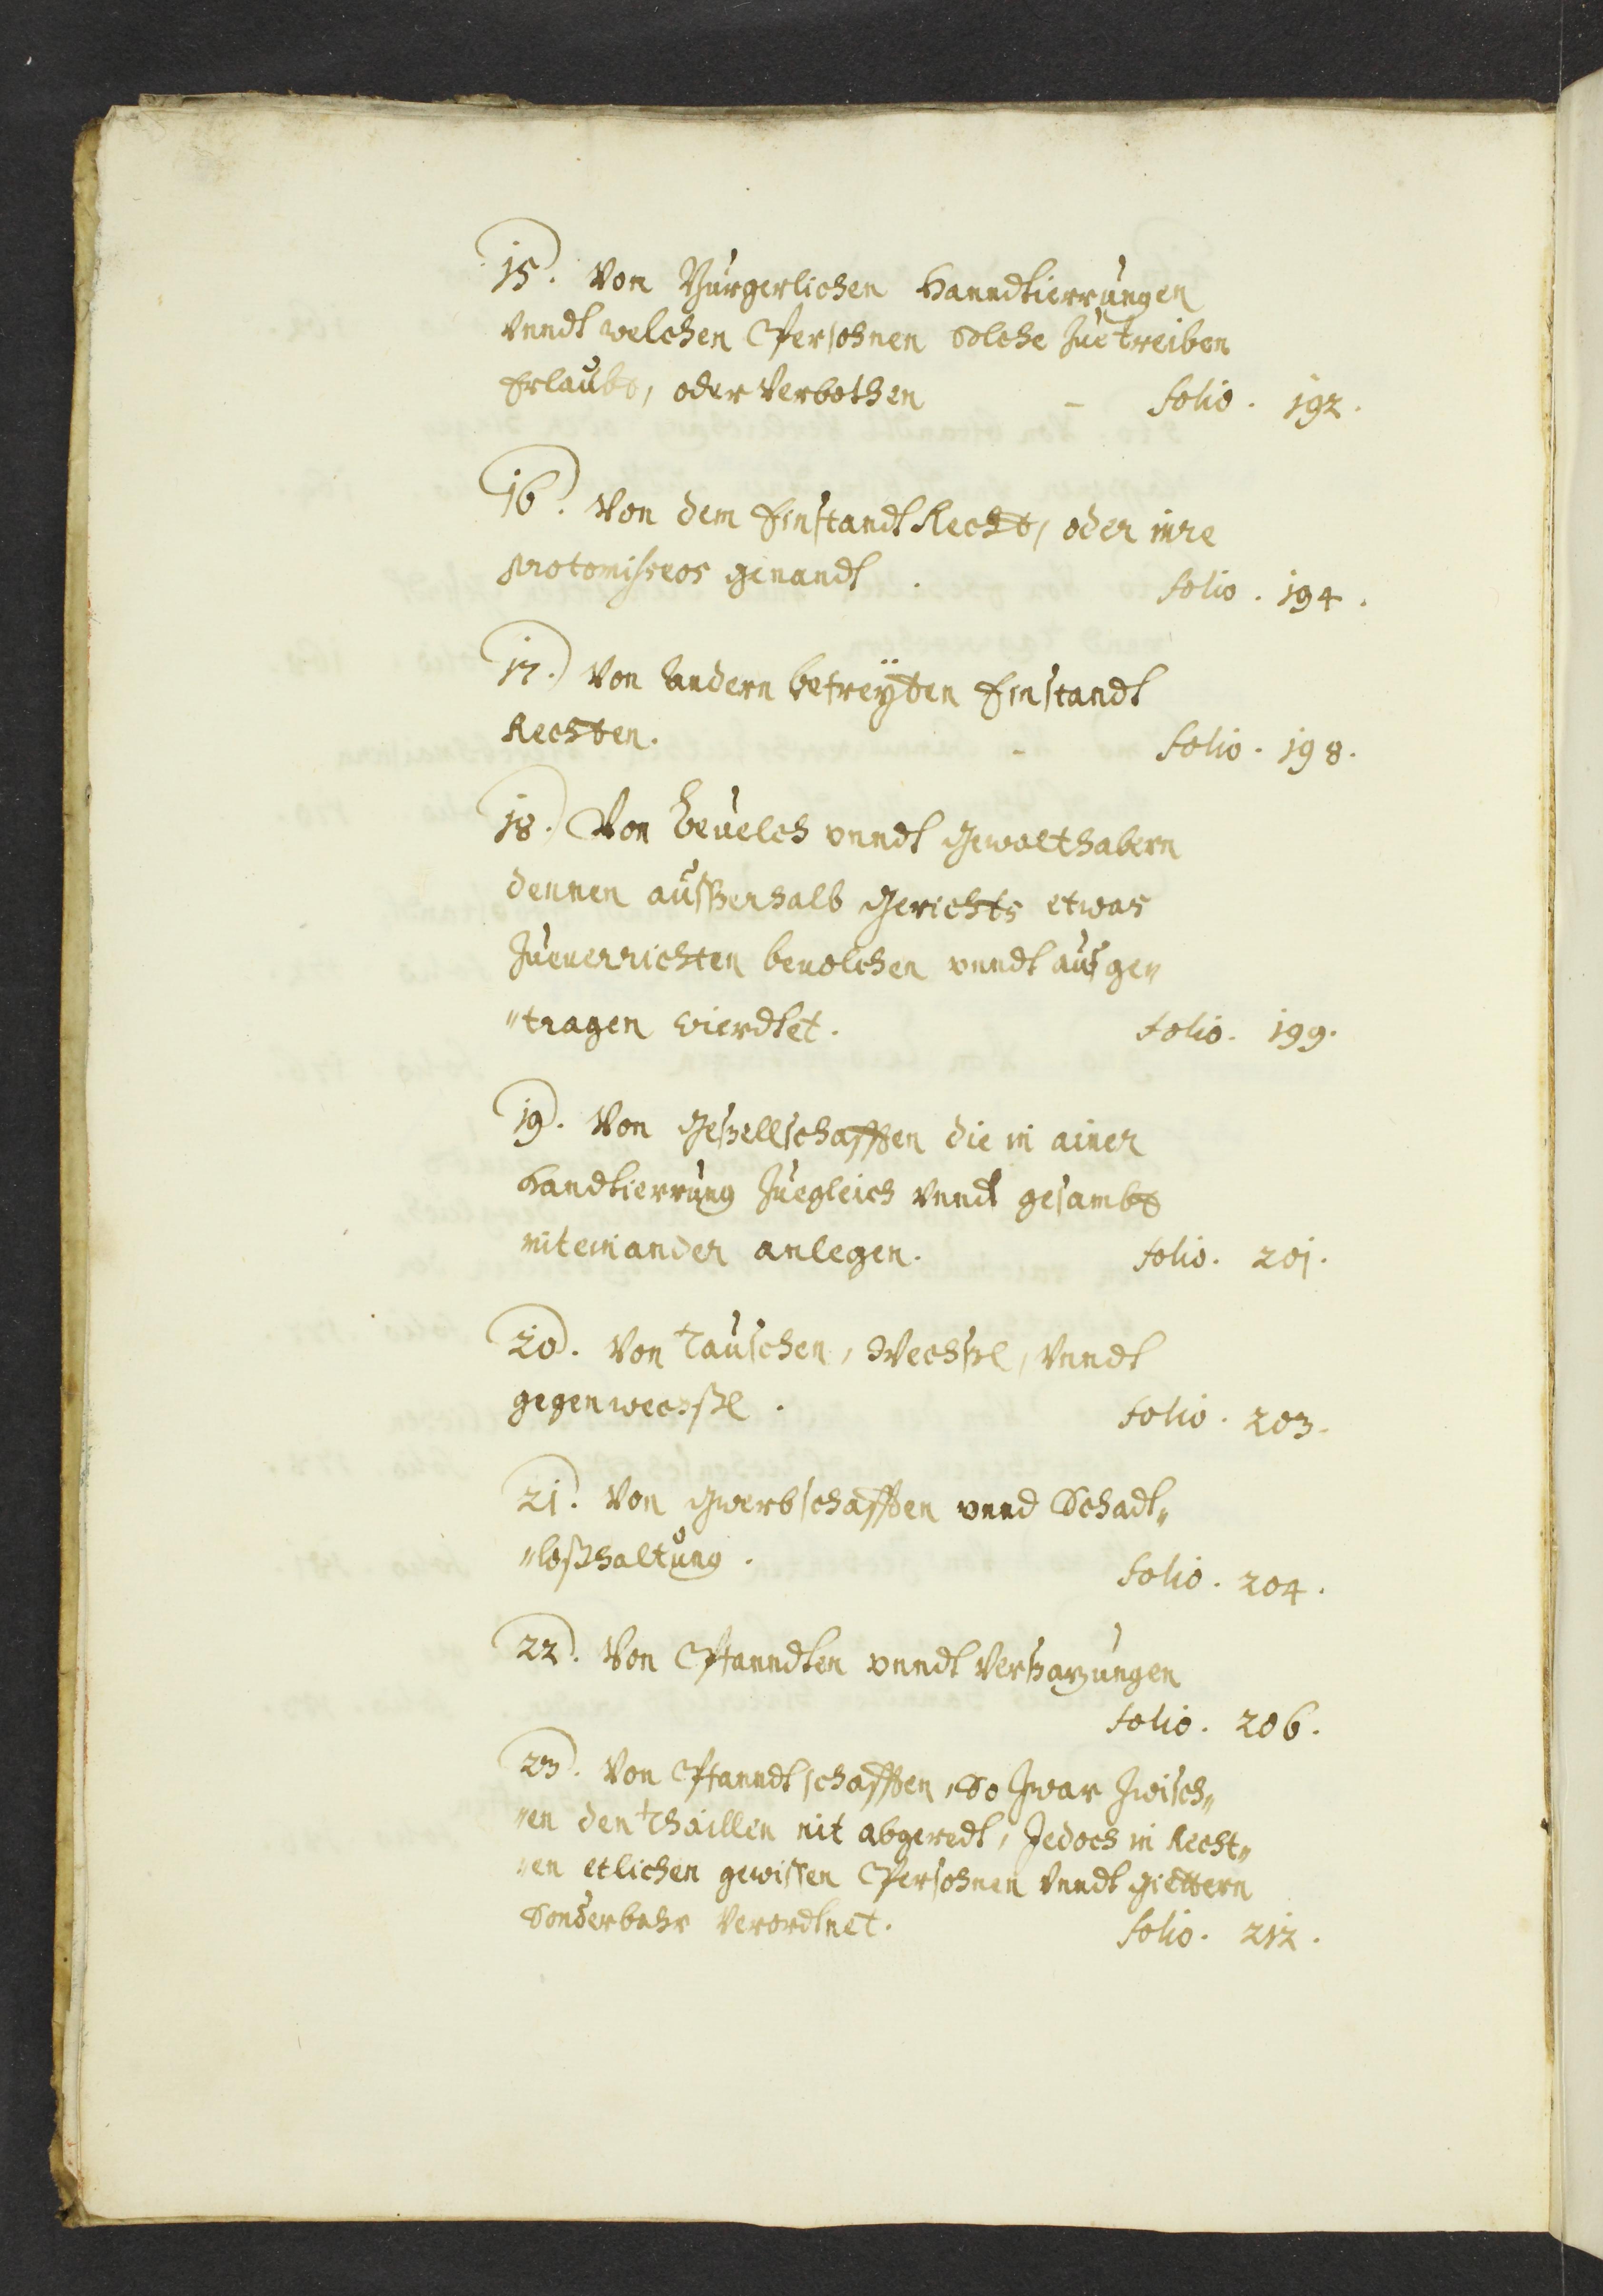 15. Von Burgerlichen Hanndtierrungen
vnndt welchen Persohnen Solche Zue treiben
Erlaubt, oder Verbothen - folio. 192.
16. Von dem Einstandt Recht, oder iure
protomiseos genandt. folio. 194.
17. Von andern befreyten Einstandt
Rechten. - folio. 198.
18. Von beuelch vnndt Gewalthabern
dennen ausserhalb Gerichts etwas
Zuuerrichten beuolchen vnndt aufge„
„tragen wierdtet. folio. 199.
19. Von Geßellschafften die in ainer
Handtierrung Zuegleich vnndt gesambt
miteinander anlegen. folio. 201.
20. Von Tauschen, Wechßl, vnndt
gegenwechßl. folio. 203.
21. Von Gwerbschafften vnnd Schadt„
„loßhaltung. folio. 204.
22. Von Pfanndten vnndt Versazungen
folio. 206.
23. Von Pfanndtschafften, So Zwar Zwisch„
„en den Thaillen nit abgeredt, Jedoch in Recht„
„en etlichen gewissen Persohnen vnndt Giettern
Sonderbahr Verordtnet. folio. 212.